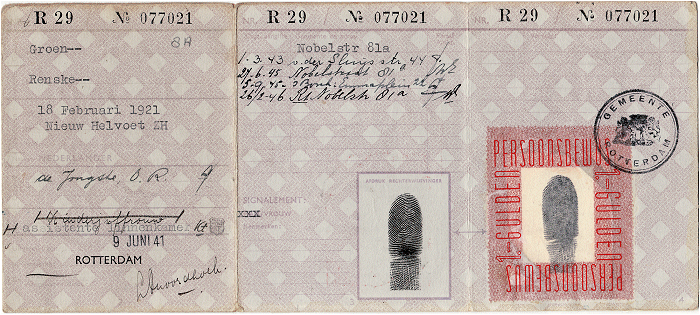 R 29 № 077021
8A
Groen--
Renske--
18 Februari 1921
Nieuw Helvoet ZH
NEDERLANDER
de Jongste, O. R.
assistente linnenkamer
9 JUNI 41
ROTTERDAM
NR. R 29 № 077021
Nobelstr 81a
1-3-43 v.der Sluysstr. 44
27-6-45 Nobelstraat 81a
5-9-45
26-2-46 Nobelstr 81a
SIGNALEMENT:
xxx VROUW
AFDRUK RECHTERWIJSVINGER
R 29 № 077021
GEMEENTE ROTTERDAM
PERSOONSBEWIJS
1-GULDEN
1-GULDEN
PERSOONSBEWIJS